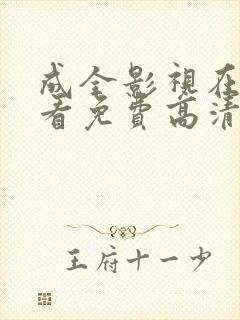 成全影視在
看免費高清
王府十一少